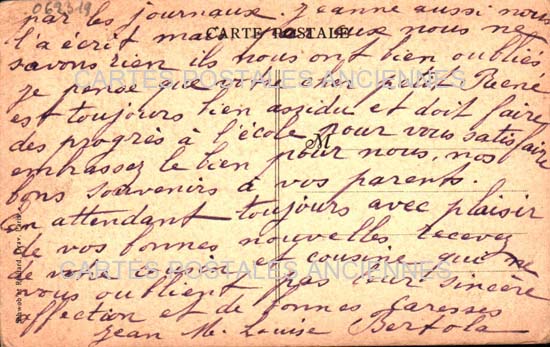 062319
par les journaux. Jeanne aussi nous
l'a écrit mais eux nous ne
CARTE POSTALE
savons rien ils nous ont bien oubliés
CARTES POSTALES ANCIENNES
je pense que votre cher petit René
est toujours bien assidu et doit faire
des progrès à l'école pour vous satisfaire
M
embrassez le bien pour nous, nos
bons souvenirs à vos parents.
En attendant toujours avec plaisir
de vos bonnes nouvelles, recevez
de votre cousin et cousine qui ne
CARTES POSTALES ANCIENNES
vous oublient pas leur sincère
affection et de bonnes caresses
Jean M. Louise Bertola